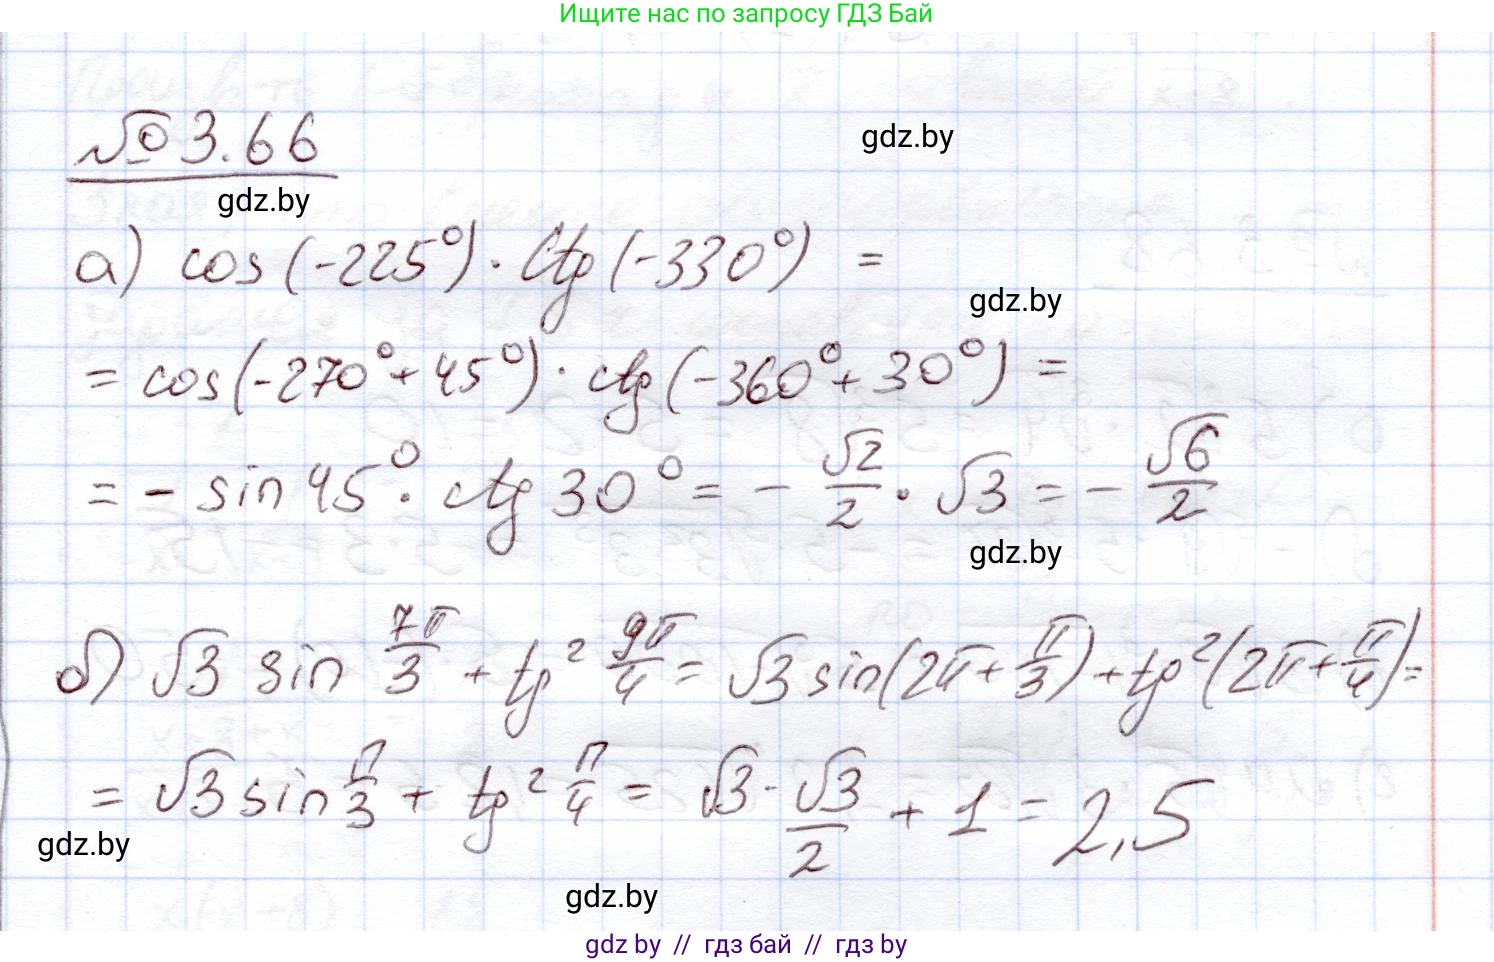 Ищите нас по запросу ГДЗ Бай
№ 3.66
gdz.by
gdz.by
а) cos(-225°) · ctg(-330°) =
gdz.by
= cos(-270°+45°) · ctg(-360°+30°) =
= - sin 45° · ctg 30° = - √2/2 · √3 = - √6/2
gdz.by
б) √3 sin 7π/3 + tg² 9π/4 = √3 sin(2π+π/3)+tg²(2π+π/4)=
= √3 sin π/3 + tg² π/4 = √3 · √3/2 + 1 = 2,5
gdz.by
gdz.by
gdz by // гдз бай // гдз by